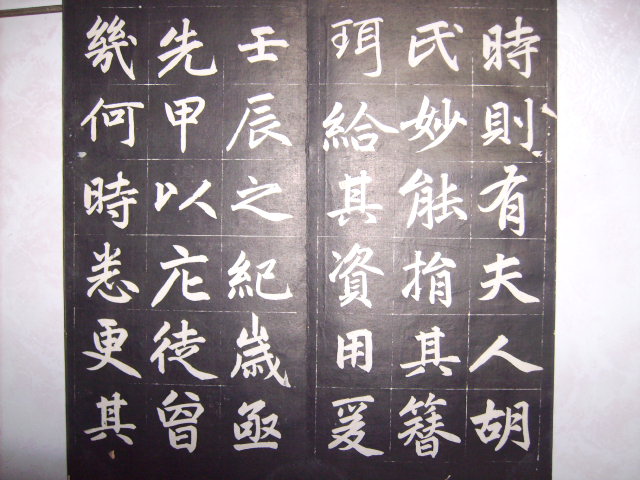 時則有夫人胡
氏妙能捐其簪
珥給其資用爰
壬辰之紀歲亟
先甲以庀徒曾
幾何時悉更其